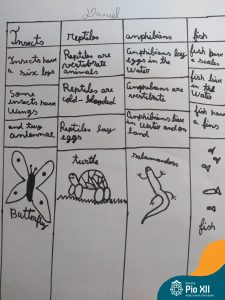 Daniel
Insects
reptiles
amphibians
fish
Insects have
a six legs
Reptiles are
vertebrate
animals
Amphibians lay
eggs in the
water
fish have
a scales
Some
insects have
wings
Reptiles are
cold-blooded
Amphibians are
vertebrate
fish live
in the
water
and two
antennal
Reptiles lay
eggs
Amphibians live
in water and on
land
fish have
a fins
Butterfly
turtle
salamanders
fish
Pio XII